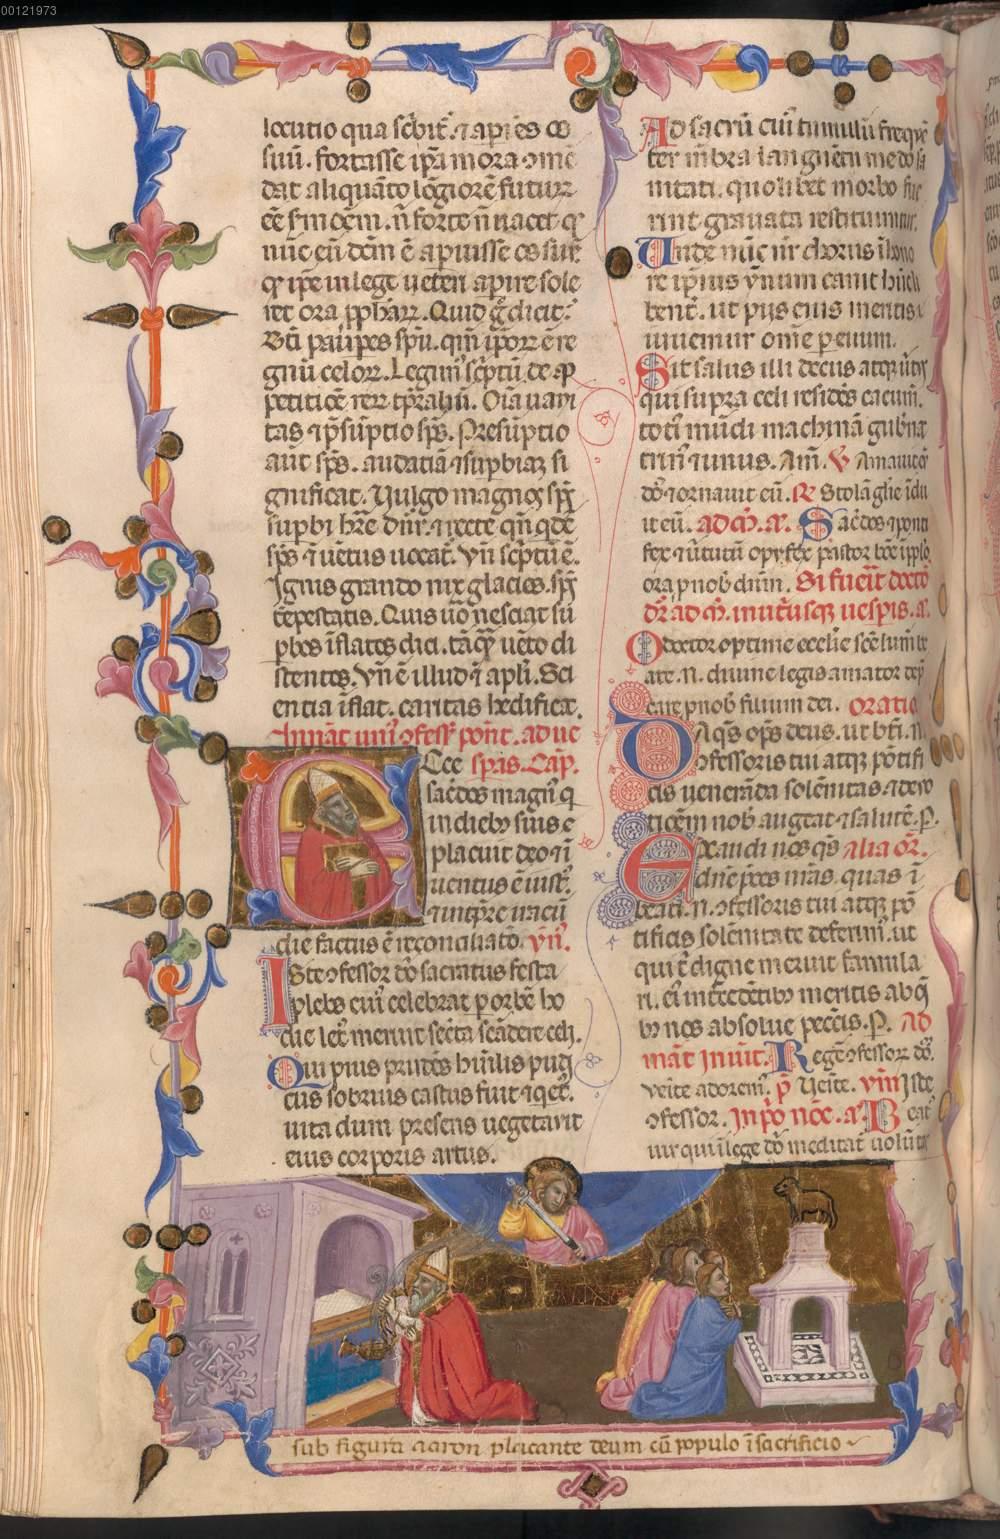 00121973
locutio qua scbit. ⁊ apiẽs os
suũ. fortasse ip̃a mora ꝯmẽ
dat aliquãto lõgiorẽ futurꝝ
eẽ smonẽ. ñ forte ñ uacet qꝫ
nũc eũ dc̃m ẽ apuisse os suũ.
qꝫ ip̃e in lege ueteri apire sole
ret ora pph̃arꝝ. Quid g̃ dicit.
Bt̃i paupes spũ. qm̃ ip̃orꝝ ẽ re
gnũ celorꝝ. Legim᷒ sc̃ptũ de ap
petitiõe rerꝝ tp̃raliũ. Oĩa uani
tas ⁊ p̃sũptio sp̃s. Presũptio
aũt sp̃s. audatiã ⁊ supbiaꝫ si
gnificat. Uulgo magnos sp̃s
supbi hr̃e dñr. ⁊ recte qñ qdẽ
sp̃s ⁊ uẽtus uocat᷒. Vñ sc̃ptũ ẽ.
Ignis grando nix glacies. sp̃s
tẽpestatis. Quis uõ nesciat su
pbos ĩflatos dici. tãqᷓ uẽto di
stentos. Vñ ẽ illud ⁊ apl̃i. Sci
entia ĩflat. caritas hedificat.
In nat̃ uni᷒ ꝯfess̃ pont̃. ad ue
Cce spas. Cap̃.
sac̃dos magn᷒ q
in diebꝫ suis
placuit deo ⁊ ĩ
uentus ẽ iust᷒.
⁊ in tp̃re iracũ
die factus ẽ reconciliatõ. ym̃.
Iste ꝯfessor dñi sacratus festa
plebs cui᷒ celebrat p orbẽ ho
die let᷒ meruit sec̃ta scãdere celi.
Qui pius prudẽs hũilis pud
cus sobrius castus fuit ⁊ qet᷒.
uita dum presens uegetauit
eius corporis artus.
Ad sacrũ cui᷒ tumulũ freqñ
ter mẽbra languẽtũ modo sa
nitati. quolibet morbo fue
rint grauata restituuntur.
Unde nũc nr̃ chorus ĩ hono
re ip̃ius ymnum canit hũc li
bent̃. ut piis eius meritis
iuuemur om̃e p euum.
Sit salus illi decus atqꝫ ũtus
qui supra celi residẽs cacumĩ.
toti᷒ mũdi machinã gub̃nat
trin᷒ ⁊ unus. Am̃. ℣ Amauit eũ
dñs ⁊ ornauit eũ. ℟ Stolã glĩe ĩdu
it eũ. ad m̃. añ. Sac̃dos ⁊ ponti
fex ⁊ ũtutũ opifex pastor bõe ĩ pplo
ora p nob̃ dñm. Si fuerit docto
or̃ ad m̃. in utrisqꝫ uespis. añ.
O doctor optime ecclie sc̃e lumẽ be
ate .N. diuine legis amator dep
care p nob̃ filium dei. oratio
Da qs̃ omps deus. ut bt̃i .N.
ꝯfessoris tui atqꝫ põtifi
cis ueneranda solẽnitas ⁊ deuo
tiõem nob̃ augeat ⁊ salutẽ. P.
Exaudi nos qs̃ alia or̃.
dñe p̃ces nr̃as. quas ĩ
beati .N. ꝯfessoris tui atqꝫ põ
tificis solẽnitate deferim᷒. ut
qui t̃ digne meruit famula
ri. ei᷒ intercedẽtibꝫ meritis ab oĩ
bꝫ nos absolue pecc̃is. P. Ad
mat̃ inuit̃. Regẽ ꝯfessorꝝ dñm.
uẽite adorem᷒. p̃ Uẽite. ym̃ Iste
ꝯfessor. In pº noc̃. añ. Beat᷒
uir qui ĩ lege dñi meditat᷒ uolũtas
sub figura aaron placante deum cũ populo ĩ sacrificio